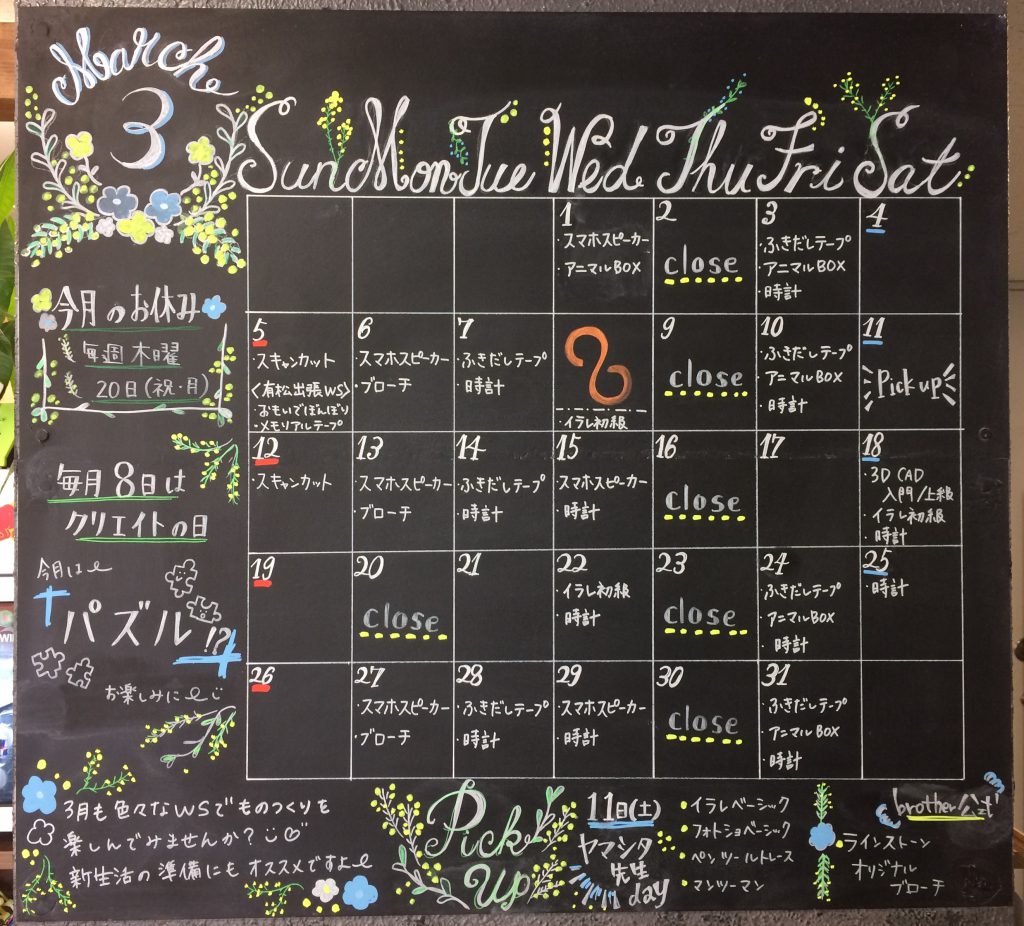 March
3
Sun Mon Tue Wed Thu Fri Sat
1
・スマホスピーカー
・アニマルBOX
2
close
3
・ふきだしテープ
・アニマルBOX
・時計
4
5
・スキャンカット
〈有松出張WS〉
・おもいでぽんぽり
・メモリアルテープ
6
・スマホスピーカー
・ブローチ
7
・ふきだしテープ
・時計
8
・イラレ初級
9
close
10
・ふきだしテープ
・アニマルBOX
・時計
11
Pick up
12
・スキャンカット
13
・スマホスピーカー
・ブローチ
14
・ふきだしテープ
・時計
15
・スマホスピーカー
・時計
16
close
17
18
・3D CAD
入門/上級
・イラレ初級
・時計
19
20
close
21
22
・イラレ初級
・時計
23
close
24
・ふきだしテープ
・アニマルBOX
・時計
25
・時計
26
27
・スマホスピーカー
・ブローチ
28
・ふきだしテープ
・時計
29
・スマホスピーカー
・時計
30
close
31
・ふきだしテープ
・アニマルBOX
・時計
今月のお休み
毎週木曜
20日(祝・月)
毎月8日は
クリエイトの日
今月は
パズル!?
お楽しみに
3月も色々なWSでものつくりを
楽しんでみませんか?
新生活の準備にもオススメですよ
Pick
Up
11日(土)
ヤマシタ
先生
day
・イラレベーシック
・フォトショベーシック
・ペンツールトレース
・マンツーマン
brother公式
・ラインストーン
オリジナル
ブローチ